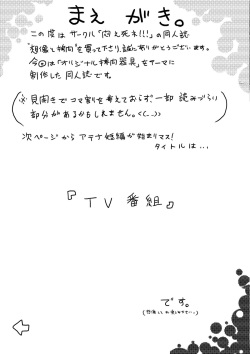 まえ がき。
この度は サークル「悶え死ね!!!」の同人誌
"想像と拷問"を買って下さり、誠にありがとうございます。
今回は「オリジナル拷問器具」をテーマに
制作した同人誌です。
※ 見開きでコマ割りを考えておらず、一部 読みづらい
部分があるかもしれません。<(_ _)>
次ページから アテナ妊編が始まりマス!
タイトルは...
『TV番組』
です。